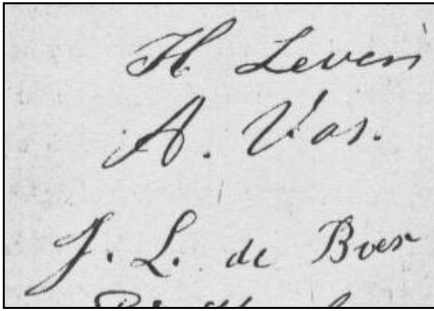 H Leven
A. Vos.
J. L. de Boer